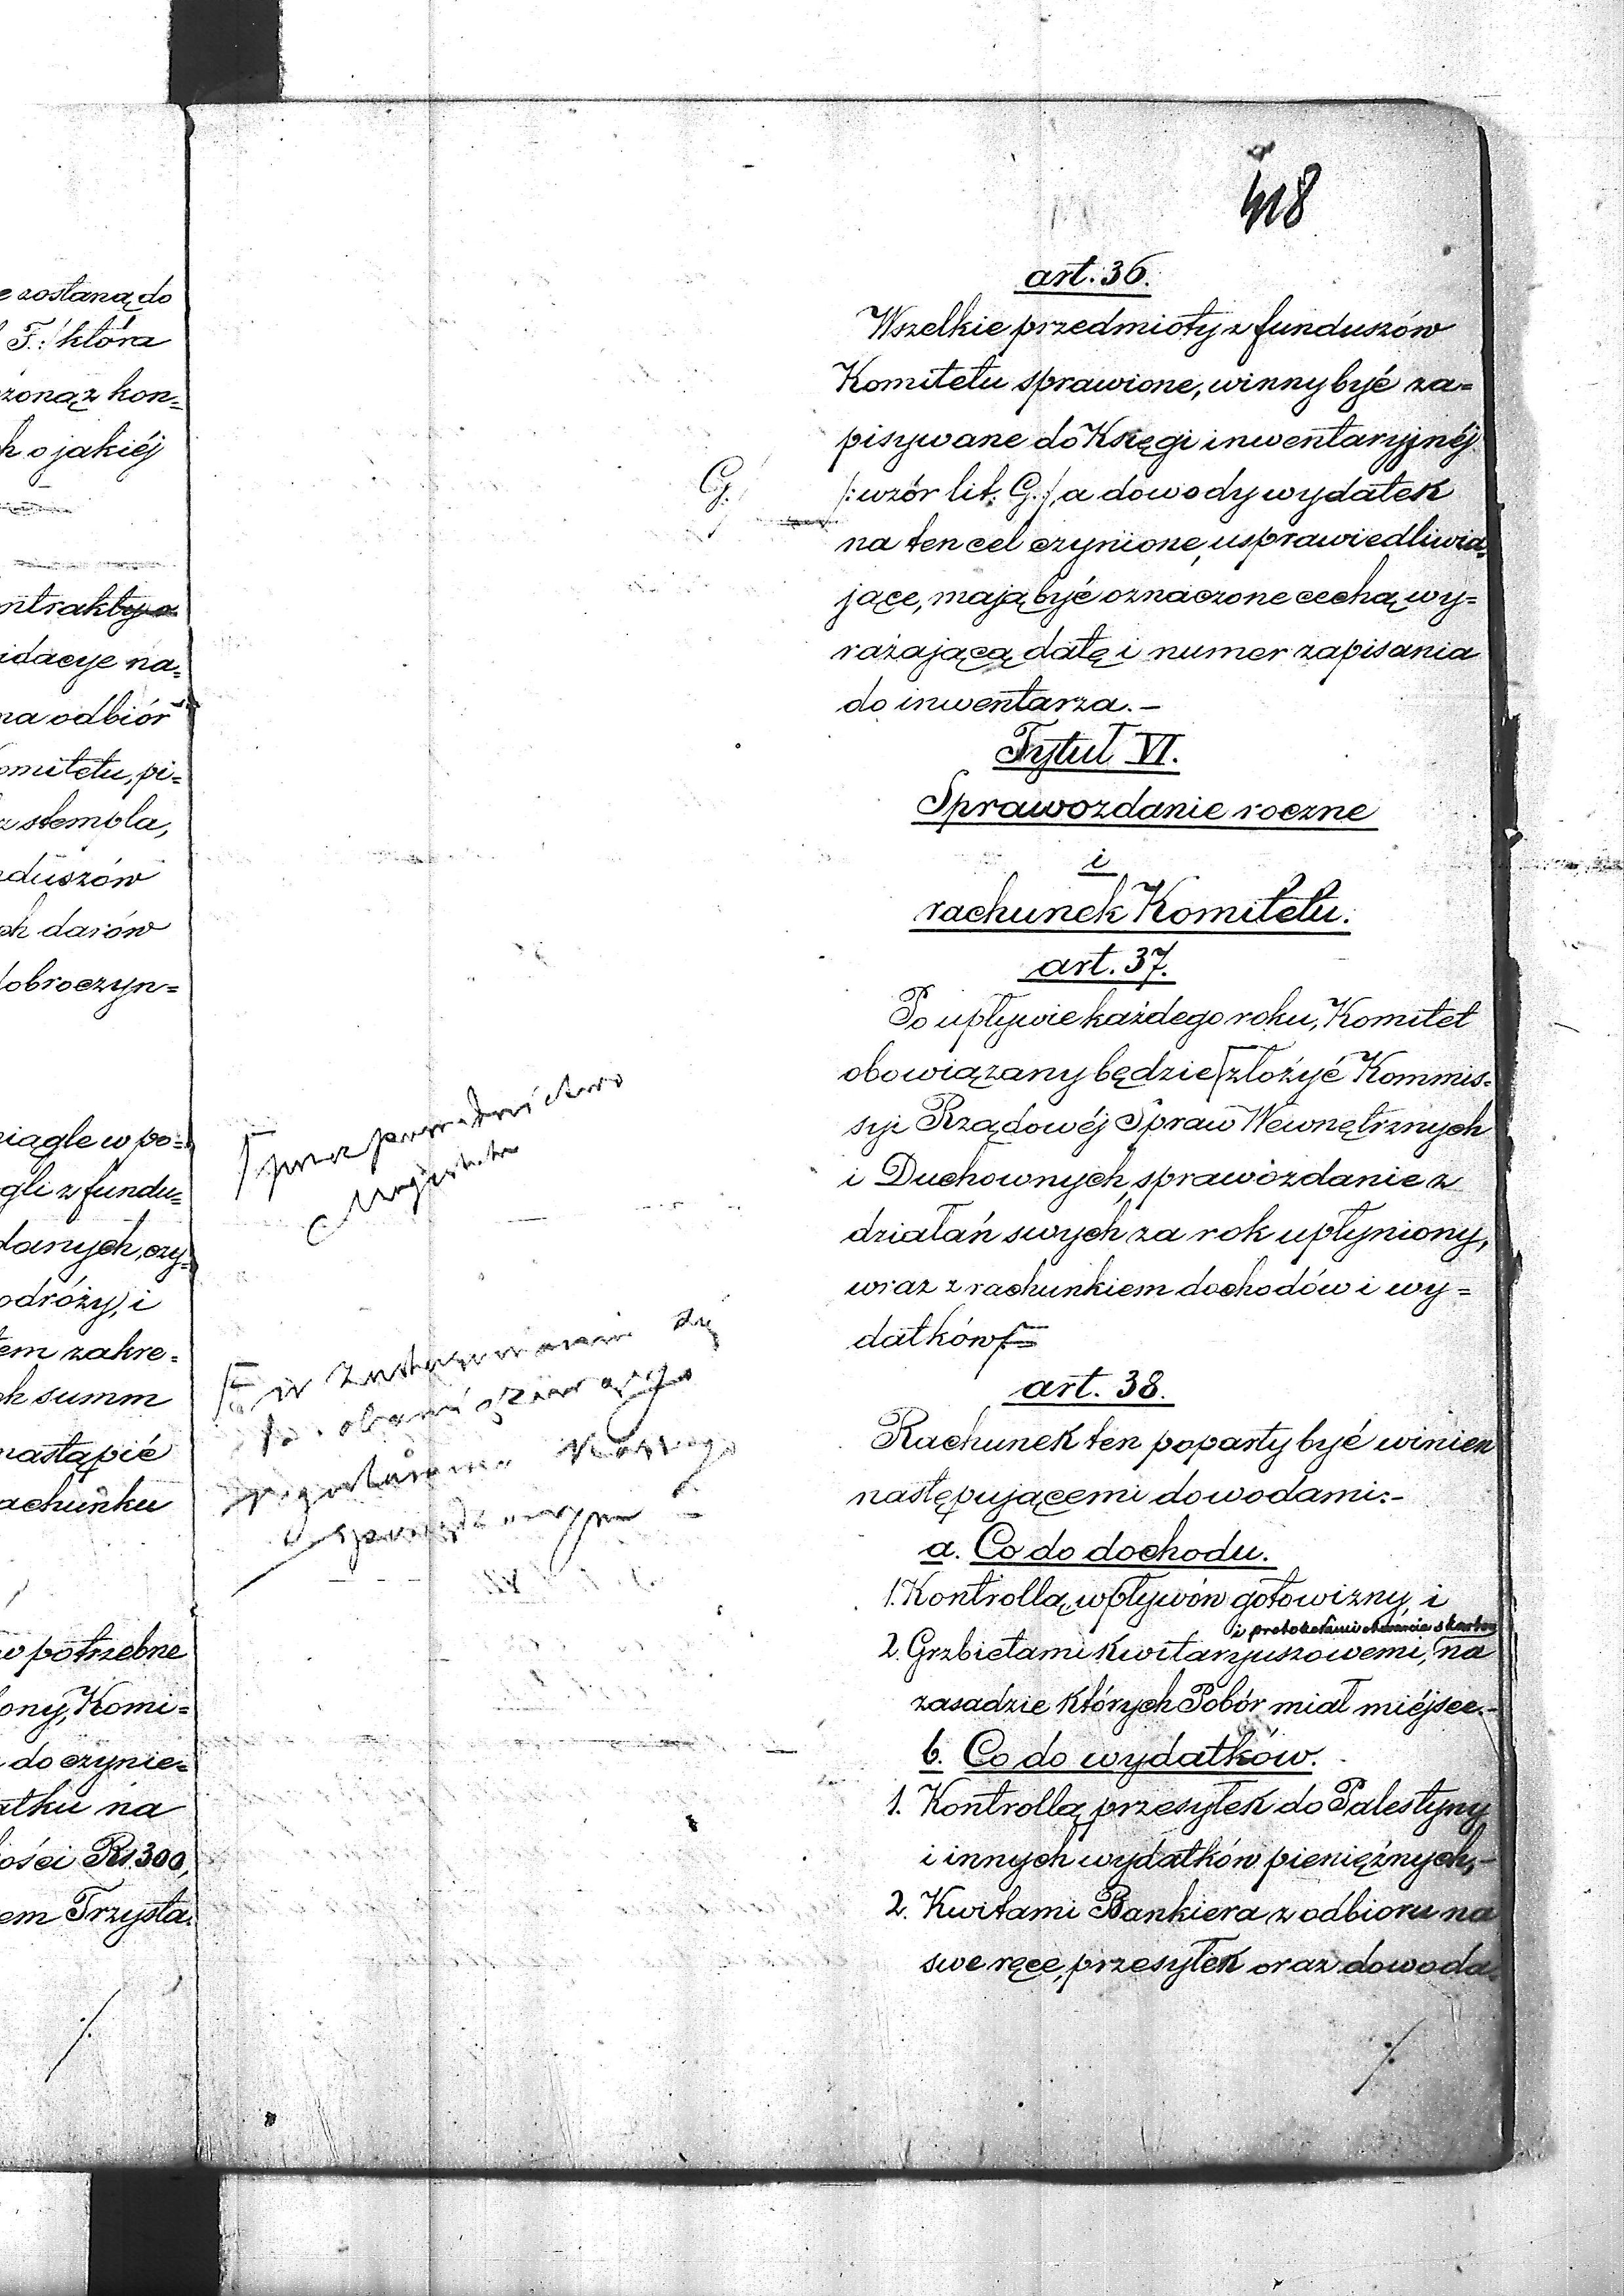 e zostaną do
F:/ która
zoną z kon=
h o jakiéj
ntrakty a
idacye na=
na odbiór
omitetu, pi=
z stempla,
duszów
ch darów
dobroczyn=
iągle w po=
gli z fundu=
danych, czy=
odróży, i
tem zakre=
ch summ
nastąpić
achunku
w potrzebne
ony, Komi=
do czynie=
atku na
ości Rs 300,
em Trzysta.
418
art. 36.
Wszelkie przedmioty z funduszów
Komitetu sprawione, winny być za=
pisywane do Księgi inwentaryjnéj
G.
/:wzór lit. G./ a dowody wydatek
na ten cel czynione, usprawiedliwia=
jące, mają być oznaczone cechą wy=
rażającą datę i numer zapisania
do inwentarza.-
Tytuł VI.
Sprawozdanie roczne
i
rachunek Komitetu.
art. 37.
Po upływie każdego roku, Komitet
obowiązany będzie złożyć Kommis=
syi Rządowéj Spraw Wewnętrznych
i Duchownych, sprawozdanie z
działań swych za rok upłyniony,
wraz z rachunkiem dochodów i wy=
datków
przez pośrednictwo
Magistratu
w zastosowaniu się
do obowiązującego
art. 38.
Rachunek ten poparty być winien
następującemi dowodami:-
a. Co do dochodu.
1. Kontrollą wpływów gotowizny i
i protokołami otwarcia skarbon
2. Grzbietami kwitaryuszowemi, na
zasadzie których Pobór miał miéjsce.-
b. Co do wydatków.
1. Kontrollą przesyłek do Palestyny
i innych wydatków pieniężnych,-
2. Kwitami Bankiera z odbioru na
swe ręce, przesyłek oraz dowoda=